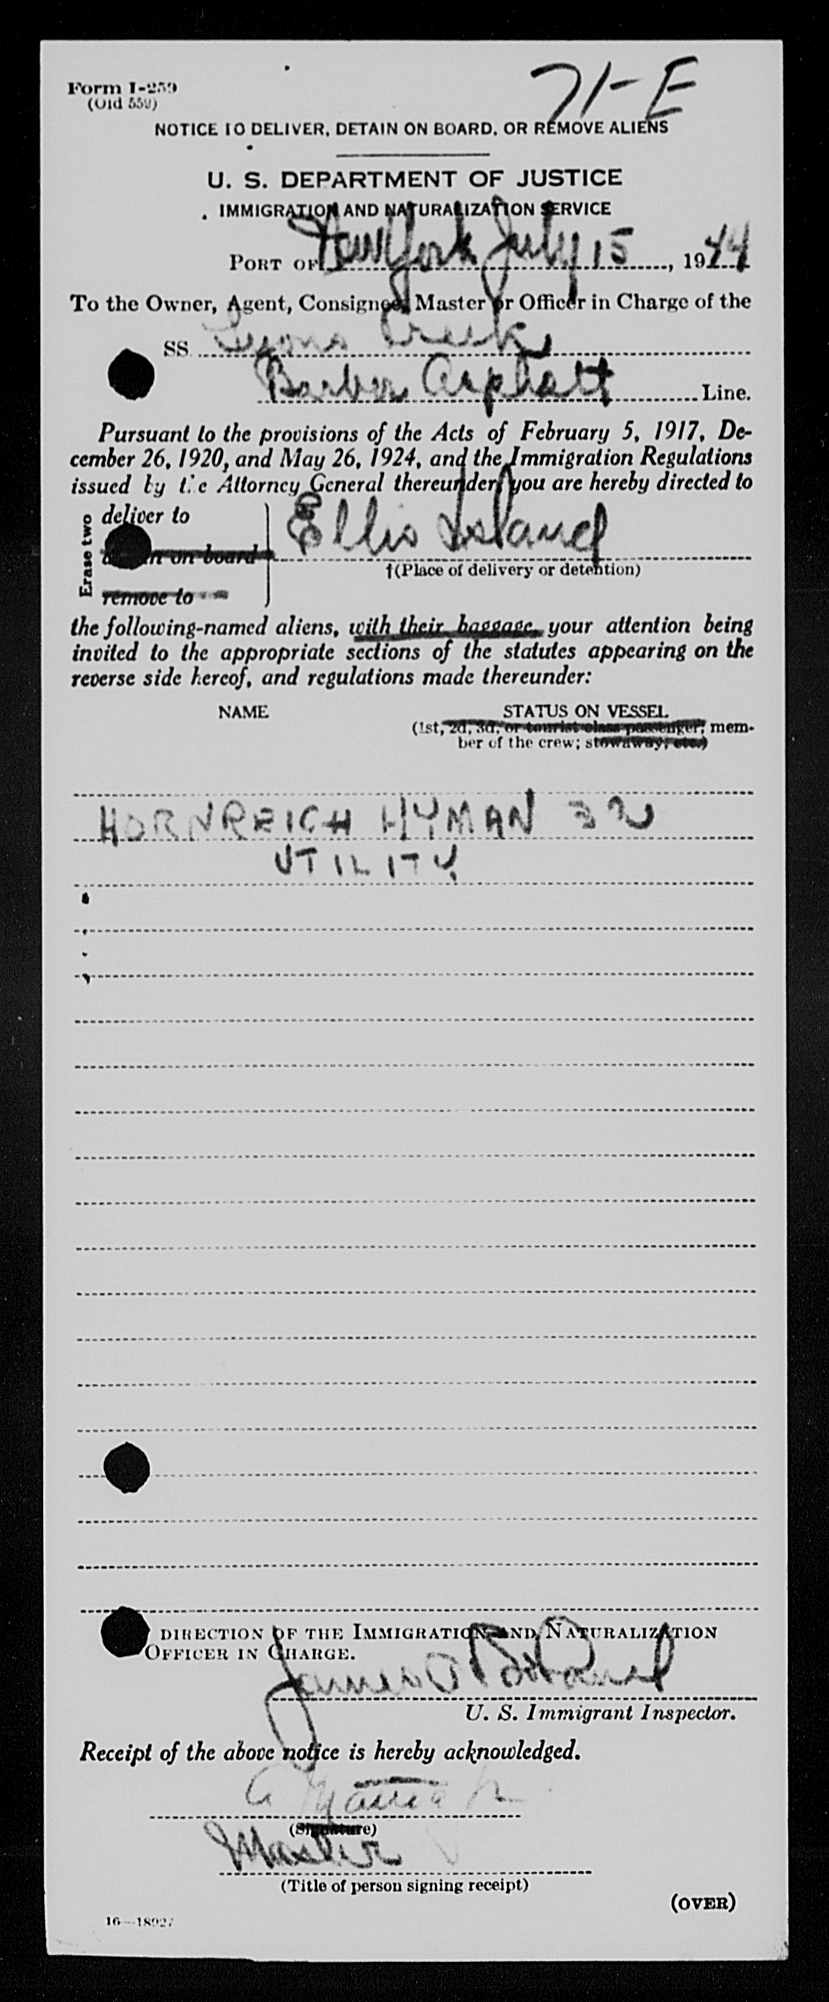 Form I-259
(Old 559)
71-E
NOTICE TO DELIVER, DETAIN ON BOARD, OR REMOVE ALIENS
U. S. DEPARTMENT OF JUSTICE
IMMIGRATION AND NATURALIZATION SERVICE
PORT OF New York July 15, 1944
To the Owner, Agent, Consignee, Master or Officer in Charge of the
SS Lyons Creek
Barber Asphalt Line.
Pursuant to the provisions of the Acts of February 5, 1917, De-
cember 26, 1920, and May 26, 1924, and the Immigration Regulations
issued by the Attorney General thereunder, you are hereby directed to
Erase two
deliver to
on board
remove to
Ellis Island
†(Place of delivery or detention)
the following-named aliens, with their baggage, your attention being
invited to the appropriate sections of the statutes appearing on the
reverse side hereof, and regulations made thereunder:
NAME STATUS ON VESSEL
(1st, 2d, 3d, or tourist class passenger; mem-
ber of the crew; stowaway; etc.)
HORNREICH HYMAN 32
UTILITY
DIRECTION OF THE IMMIGRATION AND NATURALIZATION
OFFICER IN CHARGE.
James
U. S. Immigrant Inspector.
Receipt of the above notice is hereby acknowledged.
(Signature)
Master
(Title of person signing receipt)
(OVER)
16—18927